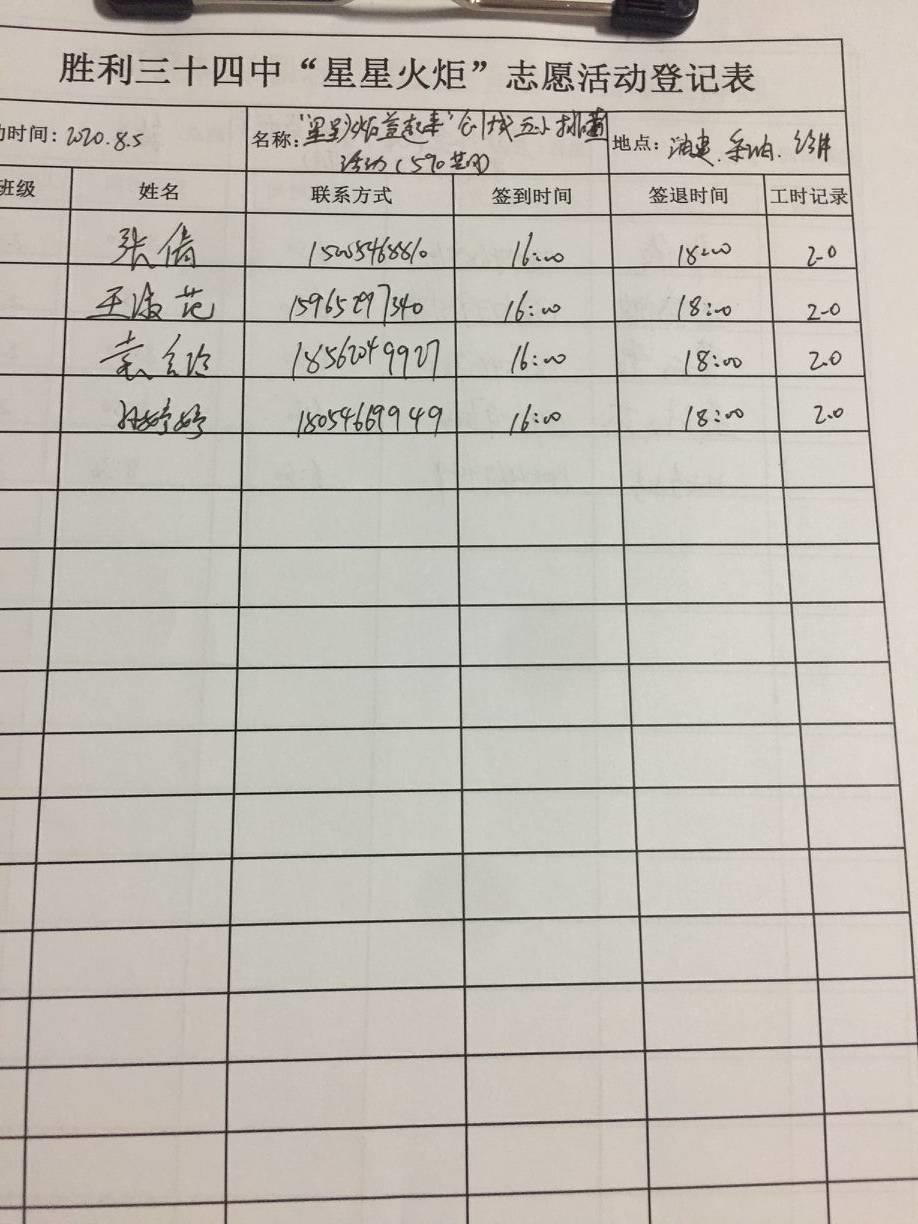 胜利三十四中“星星火炬”志愿活动登记表
动时间: 2020.8.5 名称: “星星火炬益起来”创城 排查 地点: 油建.采油.
活动(590
班级 姓名 联系方式 签到时间 签退时间 工时记录
张倩 16:00 18:00 2.0
王淑范 15965297340 16:00 18:00 2.0
袁 18562049927 16:00 18:00 2.0
孙婷婷 18054669949 16:00 18:00 2.0